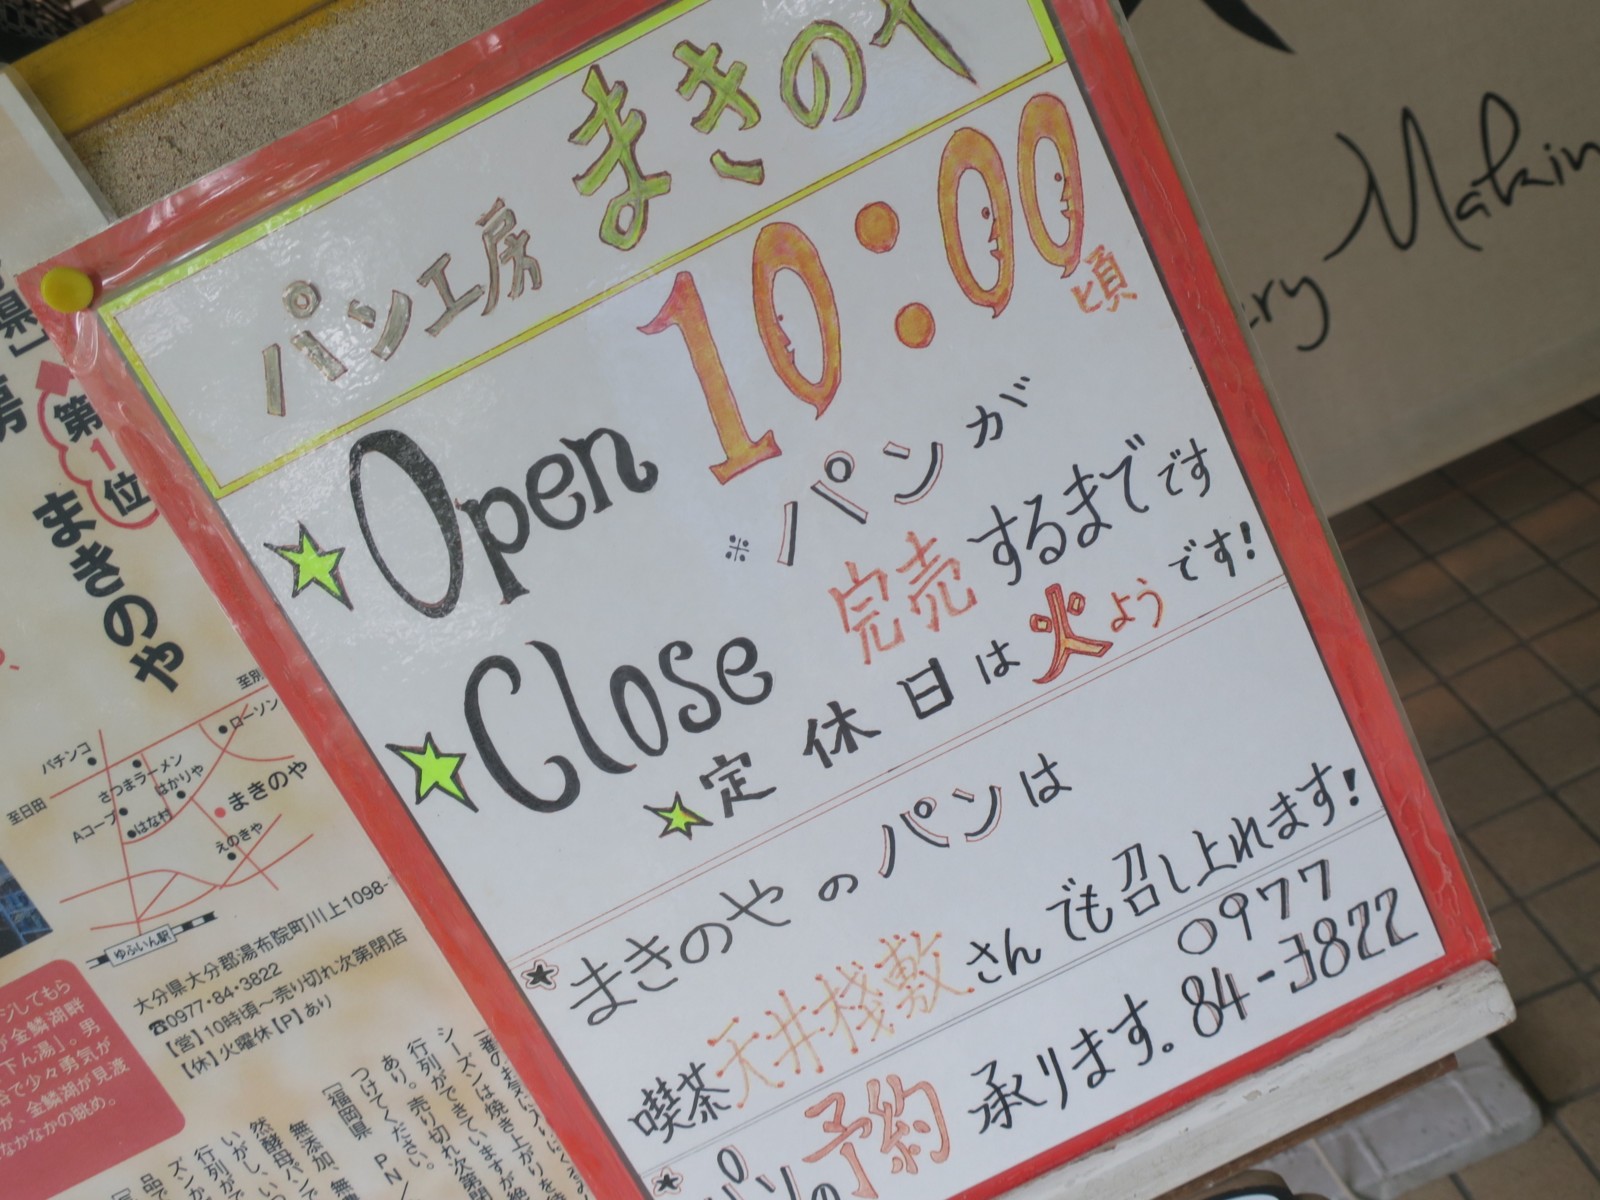 パン工房 まきのや
★Open 10:00頃
★Close ※パンが
完売するまでです
★定休日は火ようです!
★まきのやのパンは
喫茶天井棧敷さんでも召し上れます!
パンの予約承ります。0977
84-3822
Makin
ry
県」
房
第1位
まきのや
至別
ローソン
パチンコ
さつまラーメン
はかりや
至日田
Aコープ
はな村
まきのや
えのきや
ゆふいん駅
大分県大分郡湯布院町川上1098-
☎0977・84・3822
【営】10時頃〜売り切れ次第閉店
【休】火曜休【P】あり
ジしてもら
が金鱗湖畔
下ん湯」。男
谷で少々勇気が
が、金鱗湖が見渡
なかなかの眺め。
シーズンは焼き上がり
行列ができていますが
あり。売り切れ次第閉
つけてください。
［福岡県 PN/
無添加、無
然酵母パンで
いがし、い
行列がで
ズンか
品で